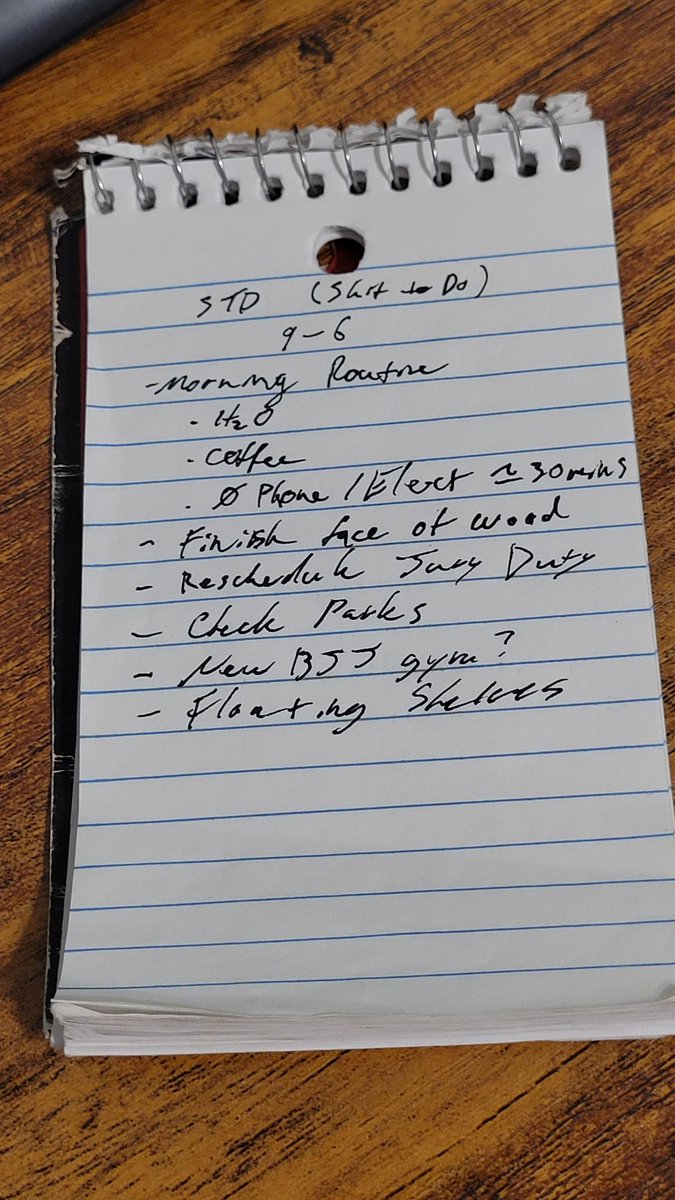 STD (Shit to Do)
9-6
- Morning Routine
· H₂O
· Coffee
· Ø Phone / Elect ≃ 30 mins
- Finish face of wood
- Reschedule Jury Duty
- Check Parks
- New BJJ gym?
- Floating Shelves